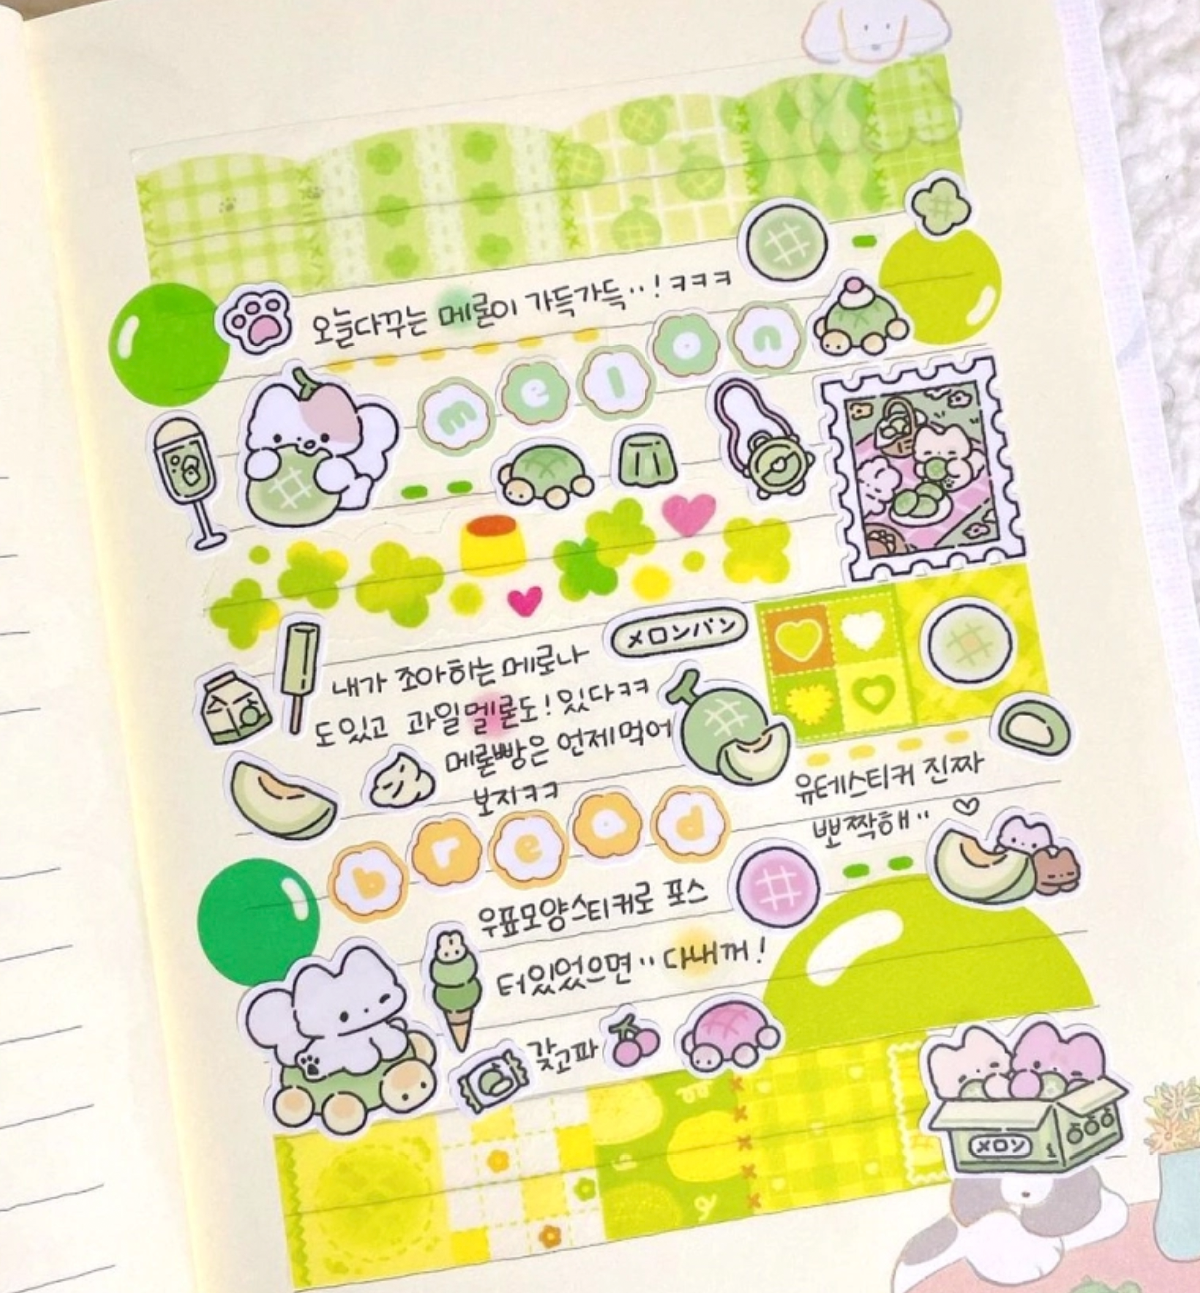 오늘다꾸는 메론이 가득가득··! ㅋㅋㅋ
melon
メロンパン
내가 조아하는 메로나
도있고 과일멜론도! 있다ㅋㅋ
메론빵은 언제먹어
보지ㅋㅋ
유테스티커 진짜
뽀짝해·· ♡
bread
우표모양스티커로 포스
터있었으면·· 다내꺼!
갖고파
メロン